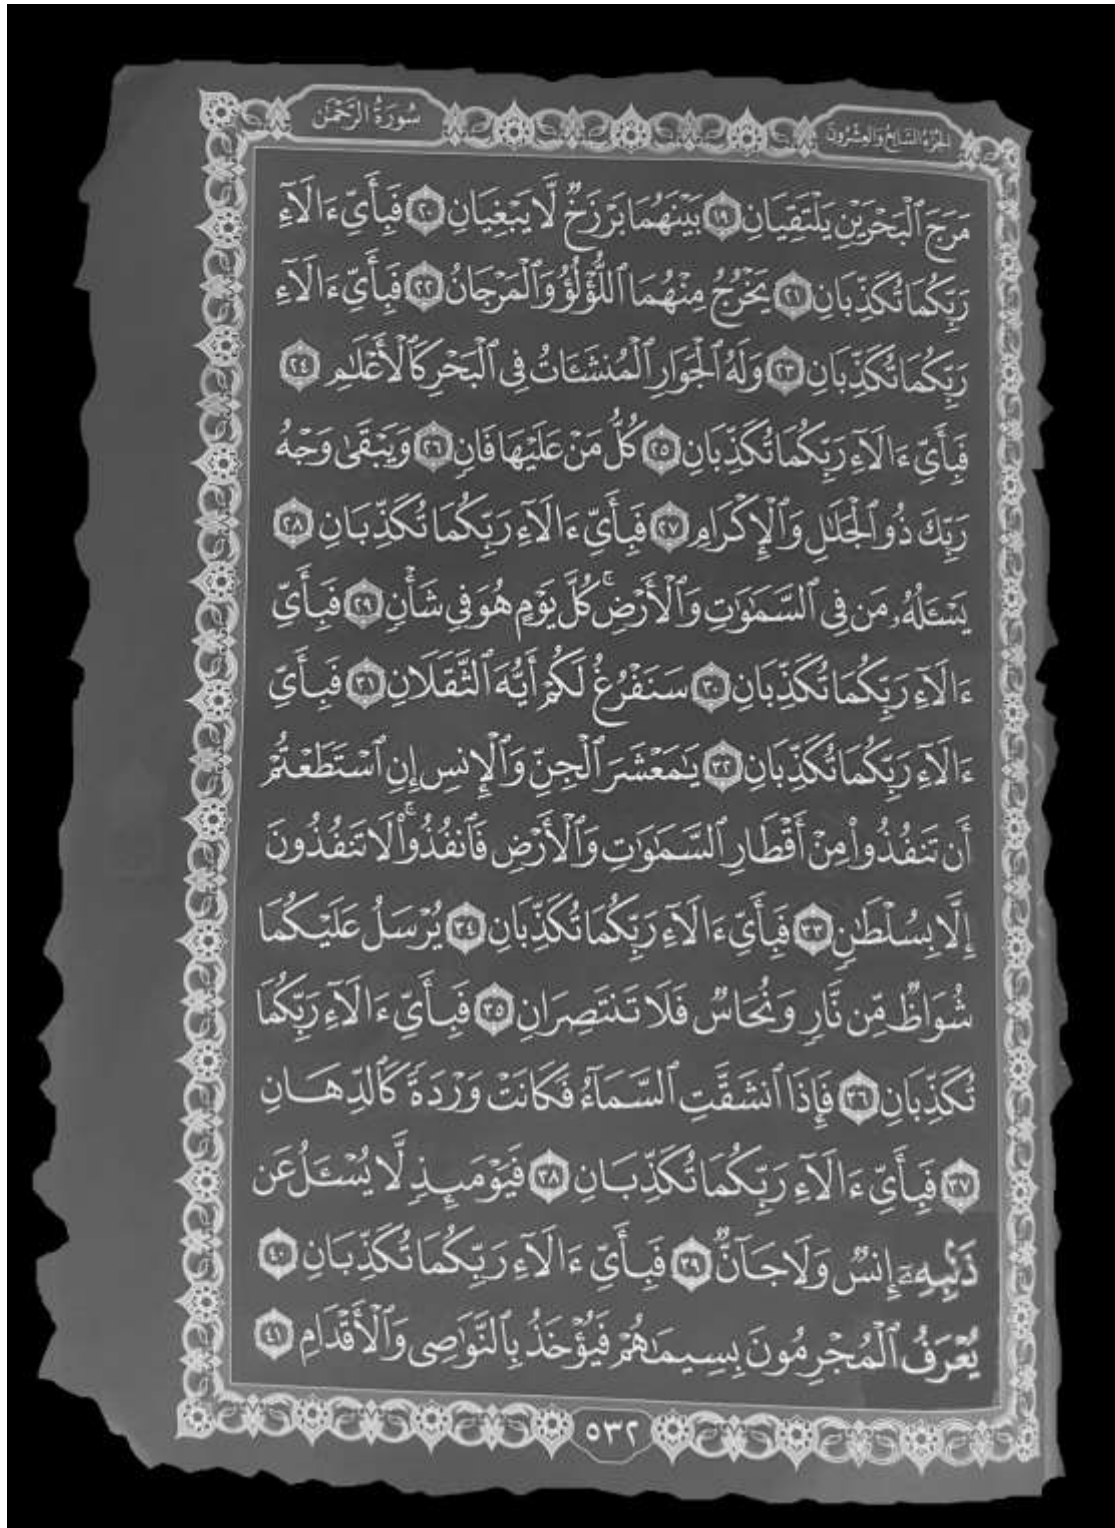 الجزء السابع والعشرون
سورة الرحمن
مَرَجَ ٱلْبَحْرَيْنِ يَلْتَقِيَانِ ١٩ بَيْنَهُمَا بَرْزَخٌ لَّا يَبْغِيَانِ ٢٠ فَبِأَيِّ ءَالَآءِ
رَبِّكُمَا تُكَذِّبَانِ ٢١ يَخْرُجُ مِنْهُمَا ٱللُّؤْلُؤُ وَٱلْمَرْجَانُ ٢٢ فَبِأَيِّ ءَالَآءِ
رَبِّكُمَا تُكَذِّبَانِ ٢٣ وَلَهُ ٱلْجَوَارِ ٱلْمُنشَـَٔاتُ فِى ٱلْبَحْرِ كَٱلْأَعْلَٰمِ ٢٤
فَبِأَيِّ ءَالَآءِ رَبِّكُمَا تُكَذِّبَانِ ٢٥ كُلُّ مَنْ عَلَيْهَا فَانٍ ٢٦ وَيَبْقَىٰ وَجْهُ
رَبِّكَ ذُو ٱلْجَلَٰلِ وَٱلْإِكْرَامِ ٢٧ فَبِأَيِّ ءَالَآءِ رَبِّكُمَا تُكَذِّبَانِ ٢٨
يَسْـَٔلُهُۥ مَن فِى ٱلسَّمَٰوَٰتِ وَٱلْأَرْضِ ۚ كُلَّ يَوْمٍ هُوَ فِى شَأْنٍ ٢٩ فَبِأَيِّ
ءَالَآءِ رَبِّكُمَا تُكَذِّبَانِ ٣٠ سَنَفْرُغُ لَكُمْ أَيُّهَ ٱلثَّقَلَانِ ٣١ فَبِأَيِّ
ءَالَآءِ رَبِّكُمَا تُكَذِّبَانِ ٣٢ يَٰمَعْشَرَ ٱلْجِنِّ وَٱلْإِنسِ إِنِ ٱسْتَطَعْتُمْ
أَن تَنفُذُوا۟ مِنْ أَقْطَارِ ٱلسَّمَٰوَٰتِ وَٱلْأَرْضِ فَٱنفُذُوا۟ ۚ لَا تَنفُذُونَ
إِلَّا بِسُلْطَٰنٍ ٣٣ فَبِأَيِّ ءَالَآءِ رَبِّكُمَا تُكَذِّبَانِ ٣٤ يُرْسَلُ عَلَيْكُمَا
شُوَاظٌ مِّن نَّارٍ وَنُحَاسٌ فَلَا تَنتَصِرَانِ ٣٥ فَبِأَيِّ ءَالَآءِ رَبِّكُمَا
تُكَذِّبَانِ ٣٦ فَإِذَا ٱنشَقَّتِ ٱلسَّمَآءُ فَكَانَتْ وَرْدَةً كَٱلدِّهَانِ
٣٧ فَبِأَيِّ ءَالَآءِ رَبِّكُمَا تُكَذِّبَانِ ٣٨ فَيَوْمَئِذٍ لَّا يُسْـَٔلُ عَن
ذَنۢبِهِۦٓ إِنسٌ وَلَا جَآنٌّ ٣٩ فَبِأَيِّ ءَالَآءِ رَبِّكُمَا تُكَذِّبَانِ ٤٠
يُعْرَفُ ٱلْمُجْرِمُونَ بِسِيمَٰهُمْ فَيُؤْخَذُ بِٱلنَّوَٰصِى وَٱلْأَقْدَامِ ٤١
٥٣٢